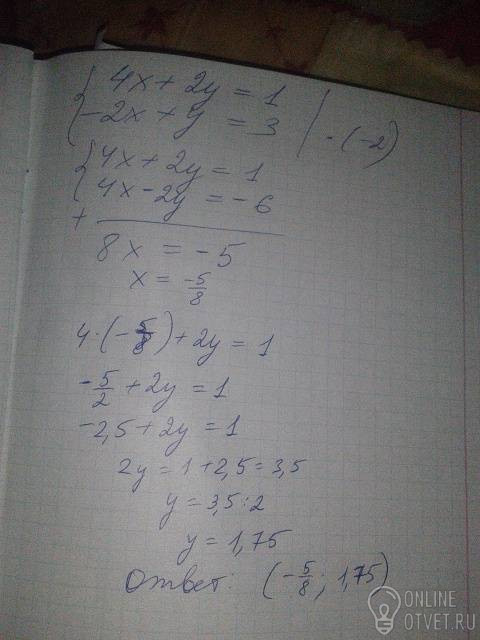 { 4x + 2y = 1
{ -2x + y = 3 | · (-2)
{ 4x + 2y = 1
{ 4x - 2y = -6
+
8x = -5
x = -5/8
4 · (-5/8) + 2y = 1
-5/2 + 2y = 1
-2,5 + 2y = 1
2y = 1 + 2,5 = 3,5
y = 3,5 : 2
y = 1,75
Ответ: (-5/8 ; 1,75)
ONLINE
OTVET.RU